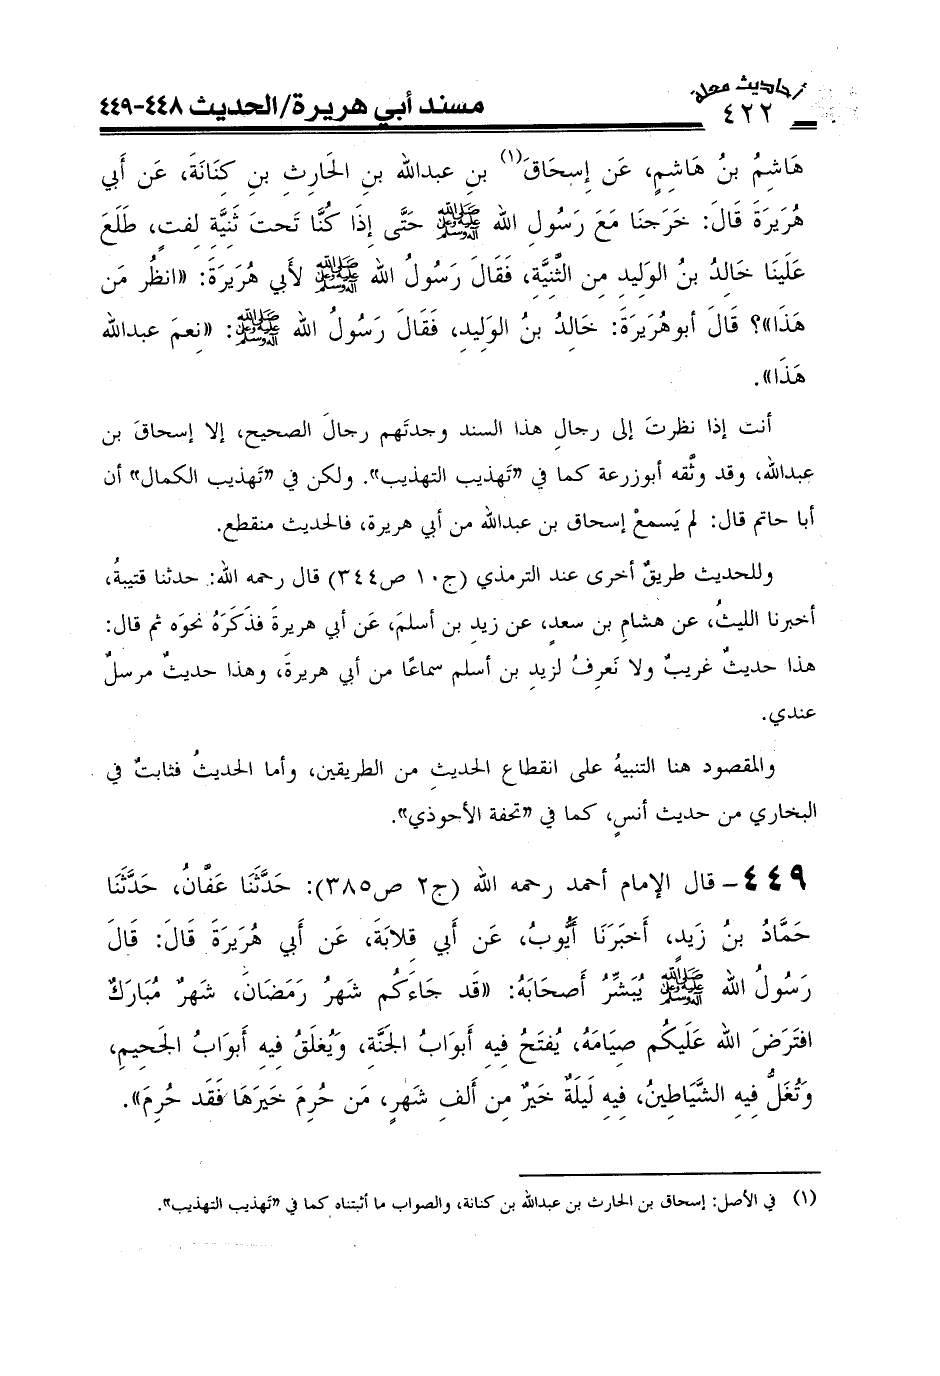 أحاديث معلة
٤٢٢
مسند أبي هريرة/الحديث ٤٤٨-٤٤٩
هَاشِمُ بنُ هَاشِمٍ، عَن إِسحَاقَ(١) بنِ عبدالله بنِ الحَارِثِ بنِ كِنَانَةَ، عَن أَبي
هُرَيرَةَ قَالَ: خَرَجنَا مَعَ رَسُولِ الله ﷺ حَتَّى إِذَا كُنَّا تَحتَ ثَنِيَّةِ لِفتٍ، طَلَعَ
عَلَينَا خَالِدُ بنُ الوَلِيدِ مِن الثَّنِيَّةِ، فَقَالَ رَسُولُ الله ﷺ لأَبي هُرَيرَةَ: «انظُر مَن
هَذَا»؟ قَالَ أبوهُرَيرَةَ: خَالِدُ بنُ الوَلِيدِ، فَقَالَ رَسُولُ الله ﷺ: «نِعمَ عبدالله
هَذَا».
أنت إذا نظرتَ إلى رجالِ هذا السند وجدتَهم رجالَ الصحيح، إلا إسحاقَ بن
عبدالله، وقد وثَّقه أبوزرعة كما في «تَهذيب التهذيب». ولكن في «تَهذيب الكمال» أن
أبا حاتم قال: لم يَسمعْ إسحاق بن عبدالله من أبي هريرة، فالحديث منقطع.
وللحديث طريقٌ أخرى عند الترمذي (ج١٠ ص٣٤٤) قال رحمه الله: حدثنا قتيبةُ،
أخبرنا الليثُ، عن هشامِ بن سعدٍ، عن زيدِ بن أسلمَ، عَن أبي هريرةَ فذَكَرَهُ نحوَه ثم قال:
هذا حديثٌ غريبٌ ولا نَعرِفُ لزيدِ بن أسلم سماعًا من أبي هريرةَ، وهذا حديثٌ مرسلٌ
عندي.
والمقصود هنا التنبيهُ على انقطاع الحديثِ من الطريقين، وأما الحديثُ فثابتٌ في
البخاري من حديث أنسٍ، كما في «تحفة الأحوذي».
٤٤٩- قال الإمام أحمد رحمه الله (ج٢ ص٣٨٥): حَدَّثَنَا عَفَّانُ، حَدَّثَنَا
حَمَّادُ بنُ زَيدٍ، أَخبَرَنَا أَيُّوبُ، عَن أَبي قِلابَةَ، عَن أَبي هُرَيرَةَ قَالَ: قَالَ
رَسُولُ الله ﷺ يُبَشِّرُ أَصحَابَهُ: «قَد جَاءَكُم شَهرُ رَمَضَانَ، شَهرٌ مُبَارَكٌ
افتَرَضَ الله عَلَيكُم صِيَامَهُ، يُفتَحُ فِيهِ أَبوَابُ الجَنَّةِ، وَيُغلَقُ فِيهِ أَبوَابُ الجَحِيمِ،
وَتُغَلُّ فِيهِ الشَّيَاطِينُ، فِيهِ لَيلَةٌ خَيرٌ مِن أَلفِ شَهرٍ، مَن حُرِمَ خَيرَهَا فَقَد حُرِمَ».
(١) في الأصل: إسحاق بن الحارث بن عبدالله بن كنانة، والصواب ما أثبتناه كما في «تَهذيب التهذيب».